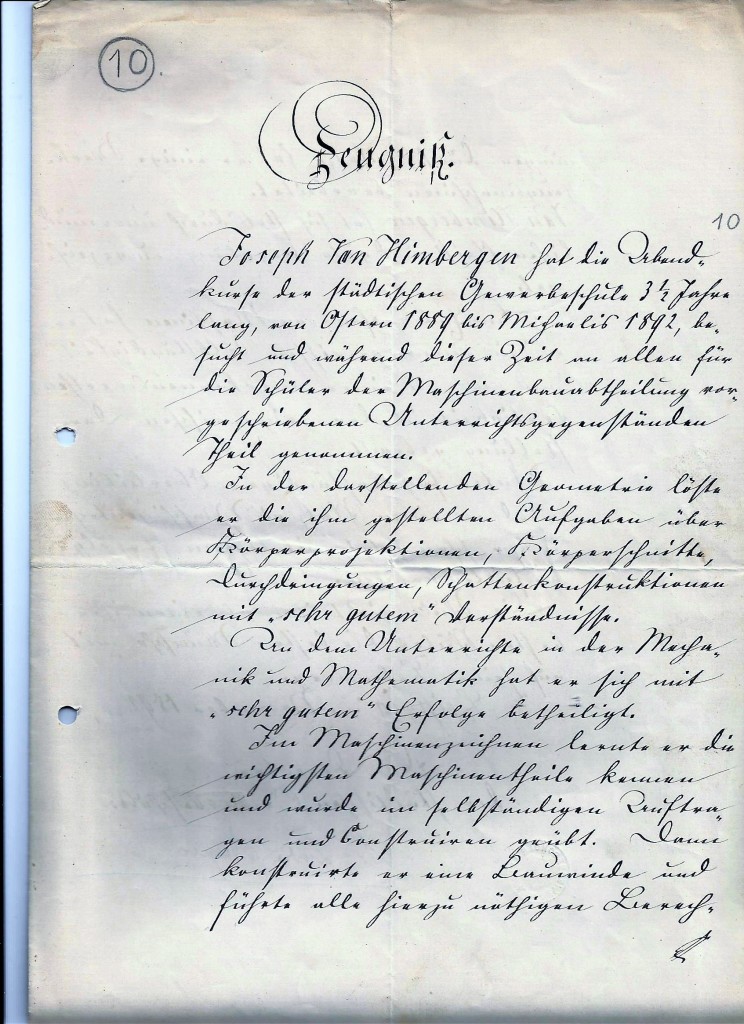 10.
Zeugniß.
10
Joseph Van Himbergen hat die Abend-
kurse der städtischen Gewerbeschule 3 1/2 Jahre
lang, von Ostern 1889 bis Michaelis 1892, be-
sucht und während dieser Zeit an allen für
die Schüler der Maschinenbauabtheilung vor-
geschriebenen Unterrichtsgegenständen
Theil genommen.
In der darstellenden Geometrie löste
er die ihm gestellten Aufgaben über
Körperprojektionen, Körperschnitte,
Durchdringungen, Schattenkonstruktionen
mit „sehr gutem“ Verständnisse.
An dem Unterrichte in der Mecha-
nik und Mathematik hat er sich mit
„sehr gutem“ Erfolge betheiligt.
Im Maschinenzeichnen lernte er die
wichtigsten Maschinentheile kennen
und wurde im selbständigen Auftra-
gen und Construiren geübt. Dann
konstruirte er eine Bauwinde und
führte alle hierzu nöthigen Berech-